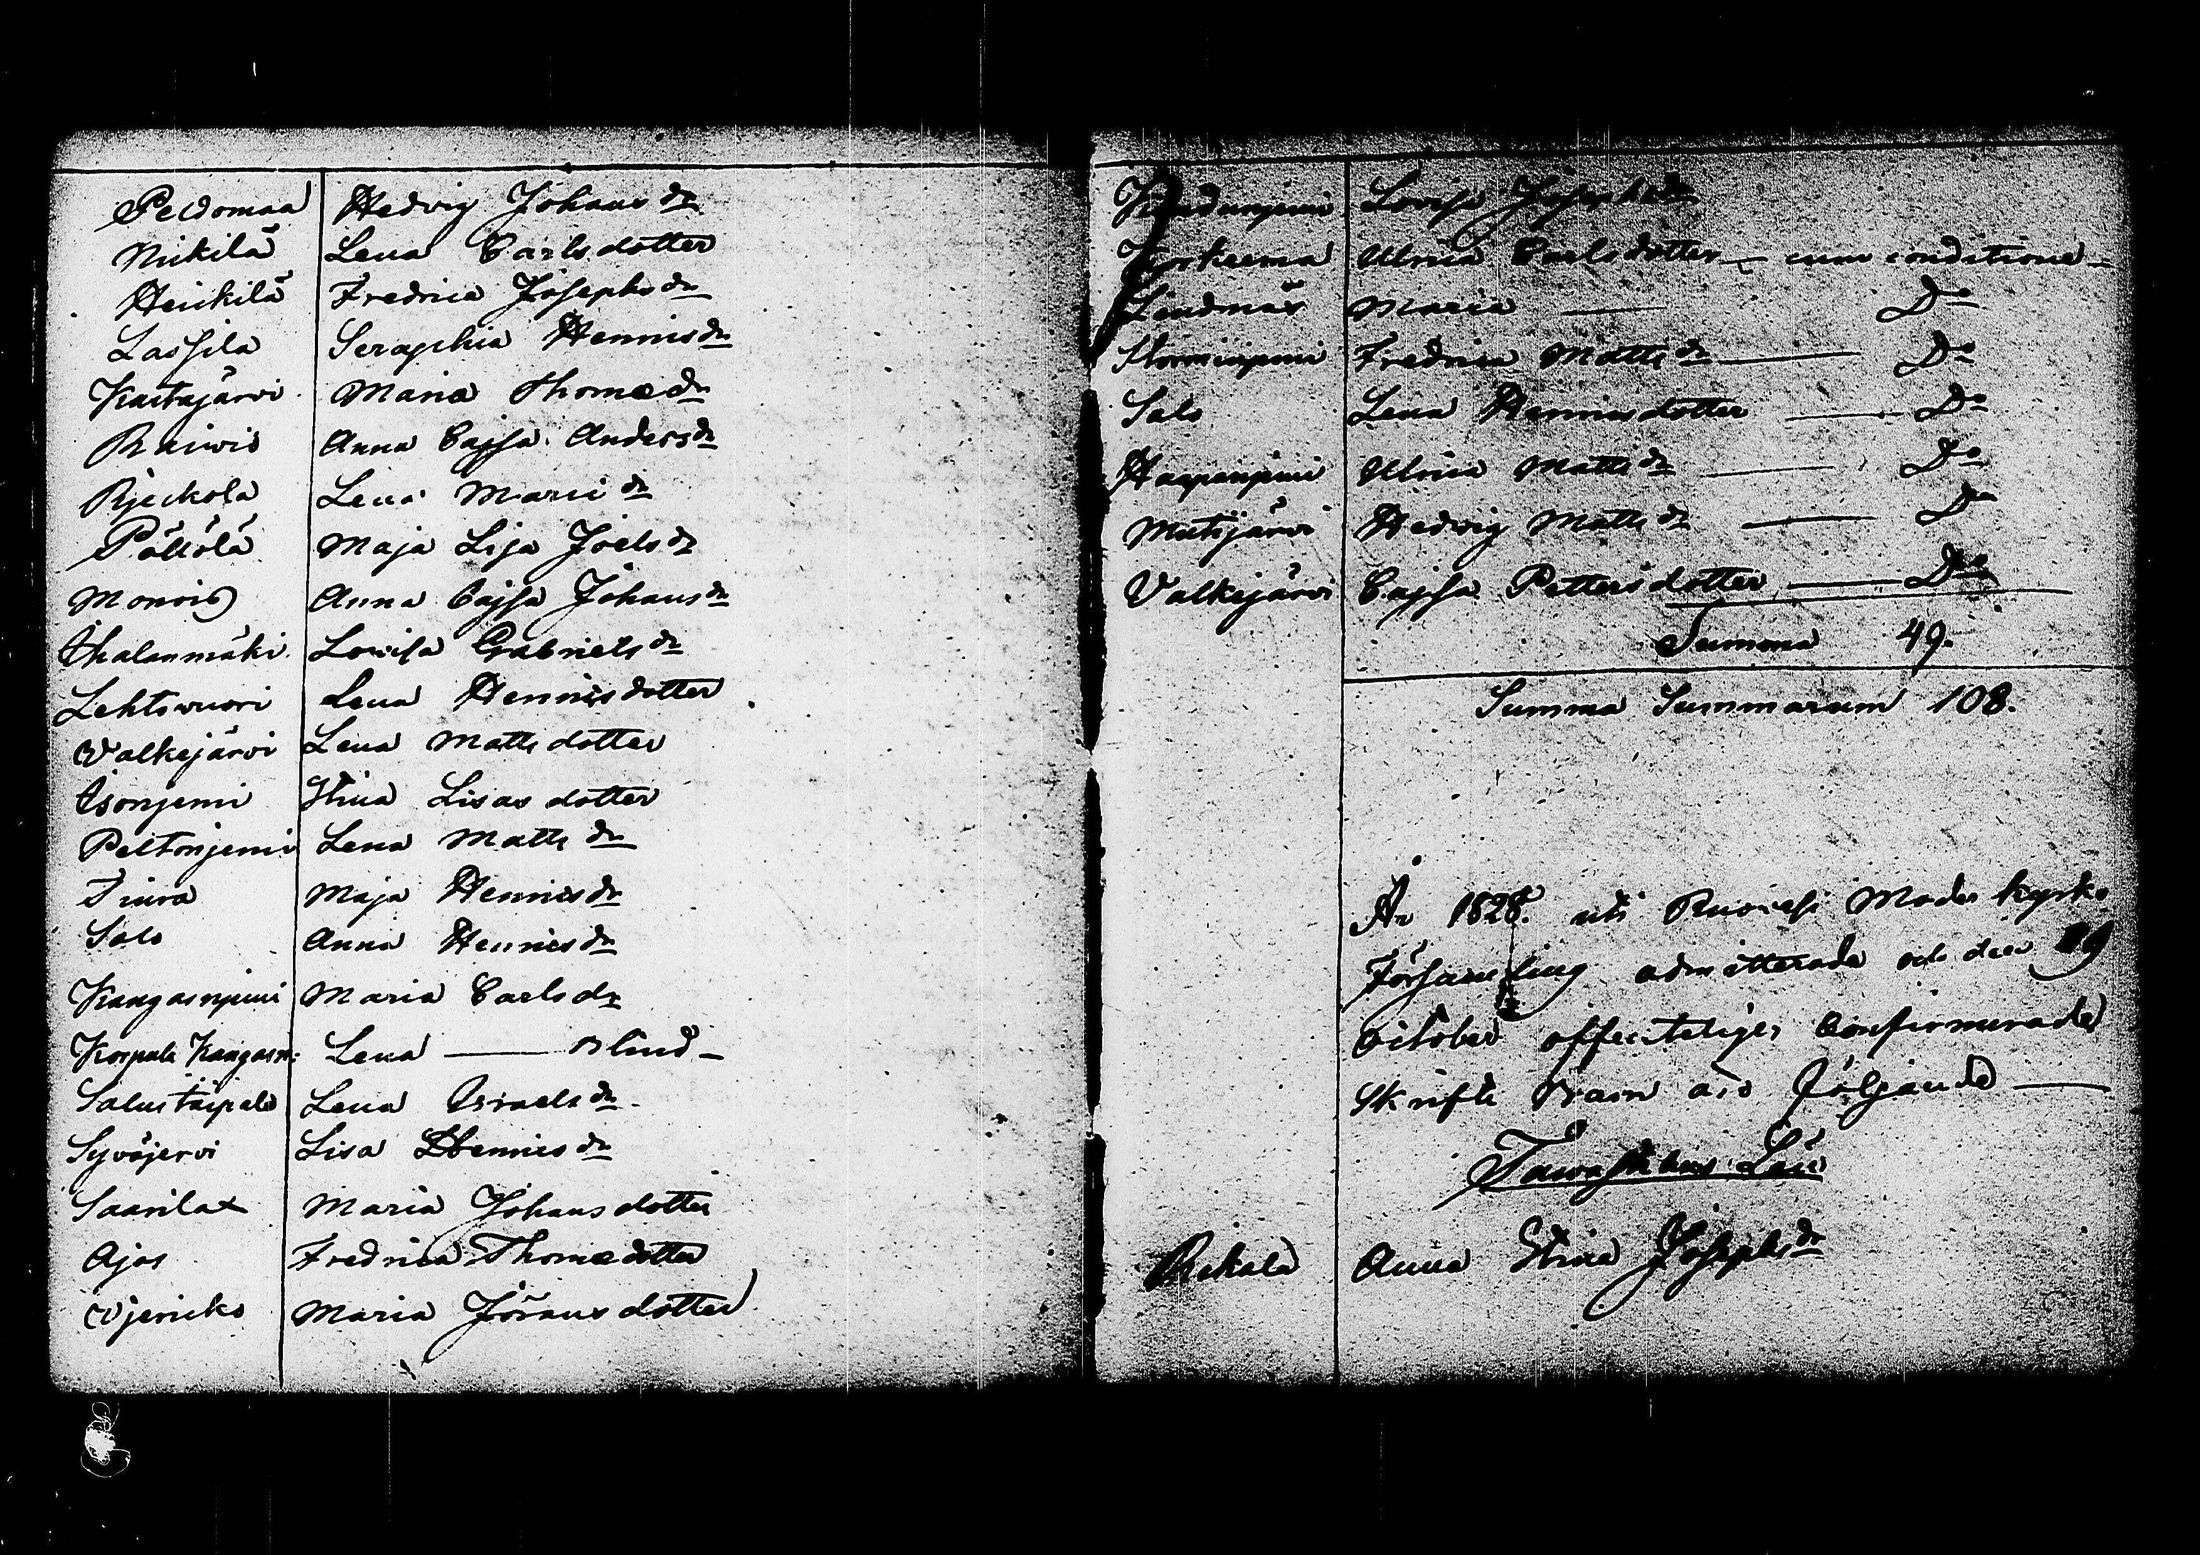 Peldomaa Hedvig Johans dr
Mikilä Lena Carlsdotter
Heickilä Fredrica Josephs dr
Lassila Seraphia Hennis dr
Kartajärvi Maria Thomæ dr
Raiwio Anna Cajsa Anders dr
Rjeckola Lena Marci dr
Pöllölä Maja Lisa Joels dr
Monois Anna Cajsa Johans dr
Ihalanmäki Lovisa Gabriels dr
Lehtovuori Lena Hennisdotter
Valkejärvi Lena Mattsdotter
Isonjemi Stina Lisas dotter
Peltonjemi Lena Matts dr
Tiura Maja Hennis dr
Salo Anna Hennis dr
Kangasnjemi Maria Carls dr
Korpula Kangasn: Lena — blind —
Salustaipale Lena Israels dr
Syväjervi Lisa Hennis dr
Saarilax Maria Johansdotter
Ajos Fredrica Thomædotter
Vjericko Maria Jöransdotter
Lovisa Josephs dr
Ulrica Carlsdotter — cum conditione —
Lindmäs Maria — Do
Storminjemi Fredrica Matts dr — Do
Salo Lena Hennisdotter — Do
Haapanjemi Ulrica Matts dr — Do
Mutijärvi Hedwig Matts dr — Do
Valkejärvi Cajsa Pettersdotter — Do
Summa 49.
Summa Summarum 108.
År 1828. uti Ruovesi Moder kyrko
Församling admitterade och den 19
October offenteligen Confirmerade
Skrifte Barn äro följande —
Tawastehus Län
Pekala Anna Stina Josephs dr